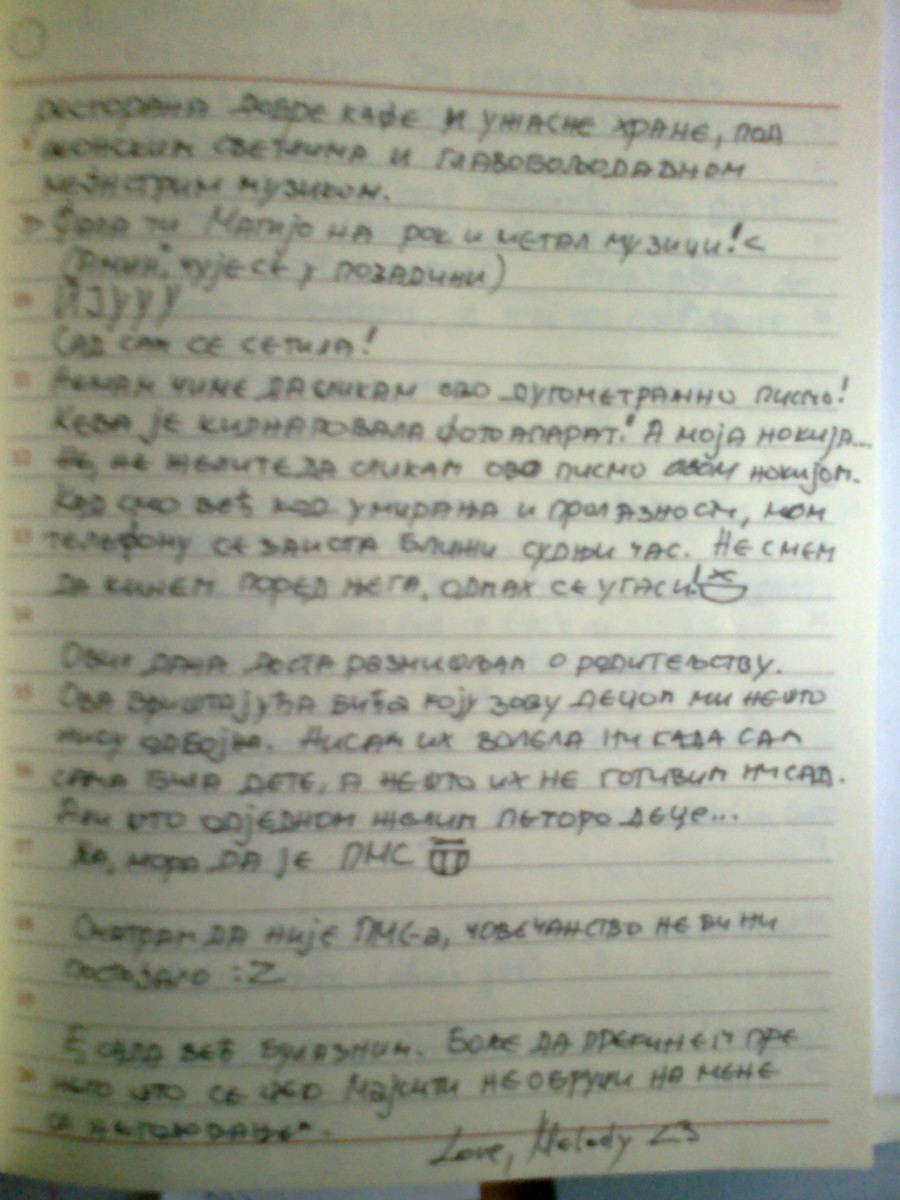 ресторана добре кафе и ужасне хране, под
неонским светлима и главобољодадном
мејнстрим музиком.
Фала ти Магијо на рок и метал музици! <
(Амиа, чује се у позадини)
ИЈУУУ
Сад сам се сетила!
Немам чиме да сликам ово дугометражно писмо!
Кева је киднаповала фотоапарат! А моја нокија...
Не, не желите да сликам ово писмо овом нокијом.
Кад смо већ код умирања и пролазности, мом
телефону се заиста ближи судњи час. Не смем
да кинем поред њега, одмах се угаси!
Ових дана доста размишљам о родитељству.
Ова вриштајућа бића која зову децом ми нешто
нису одбојна. Нисам их волела ни када сам
сама била дете, а нешто их не готивим ни сад.
Али што одједном желим петоро деце...
Ха, мора да је ПМС
Сматрам да није ПМС-а, човечанство не би ни
постојало :Z
Е, сада већ булазним. Боље да прекинем пре
него што се цео Мајсити не обруши на мене
са негодовањем.
Love, Melody <3